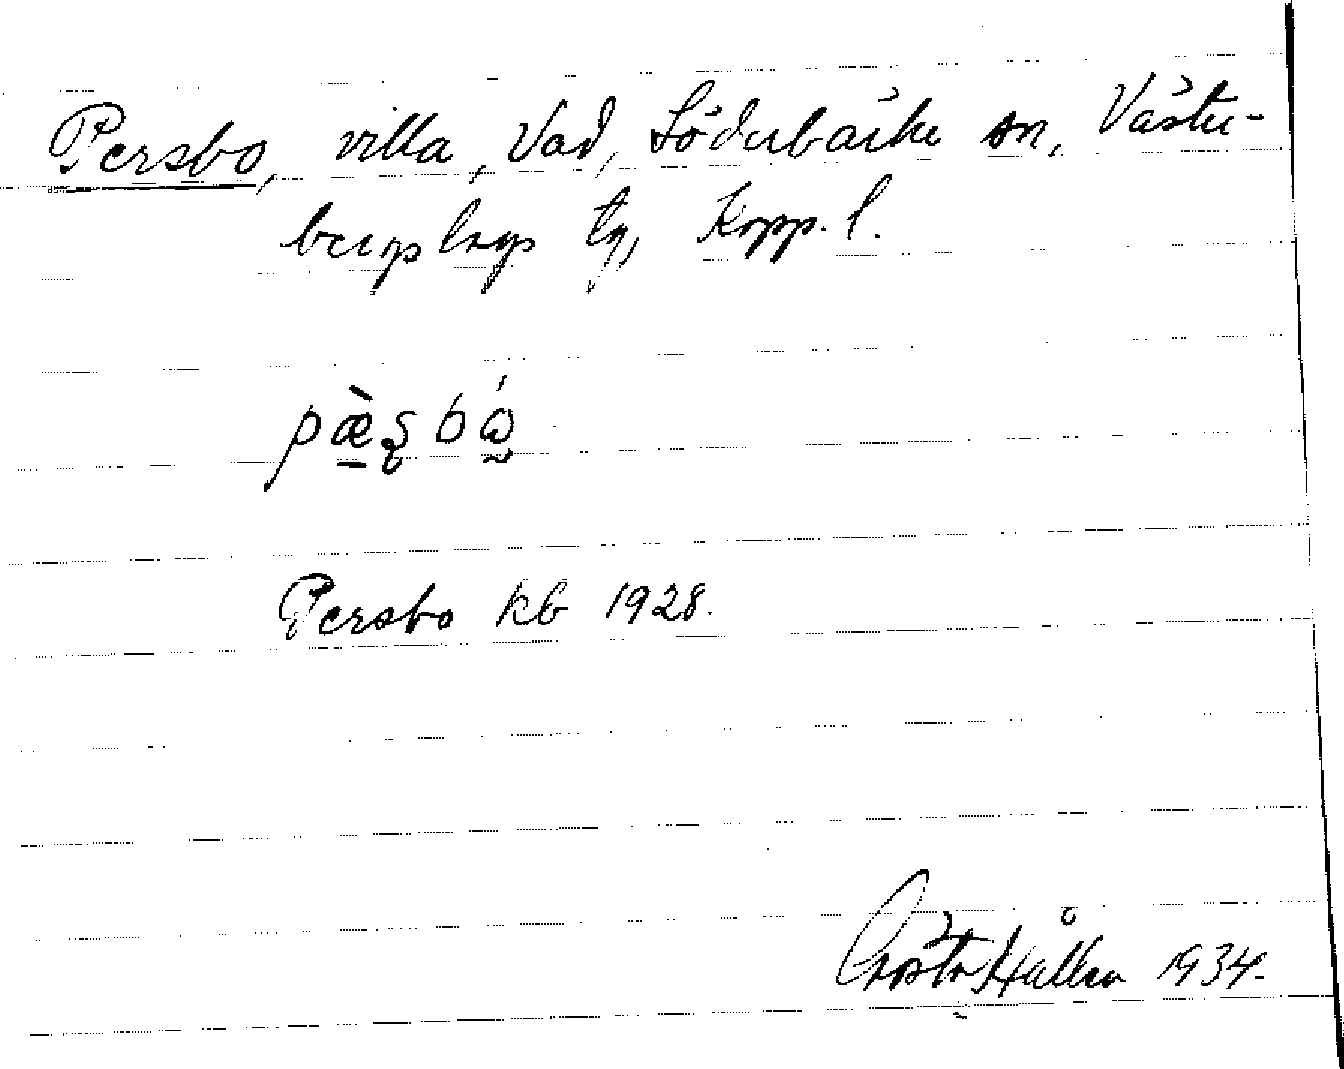 Persbo, villa, Vad, Söderbärke sn, Väster-
bergslags tg, Kopp. l.
pæ̀ʂbώ
Persbo kb 1928.
Gösta Hållen 1934.